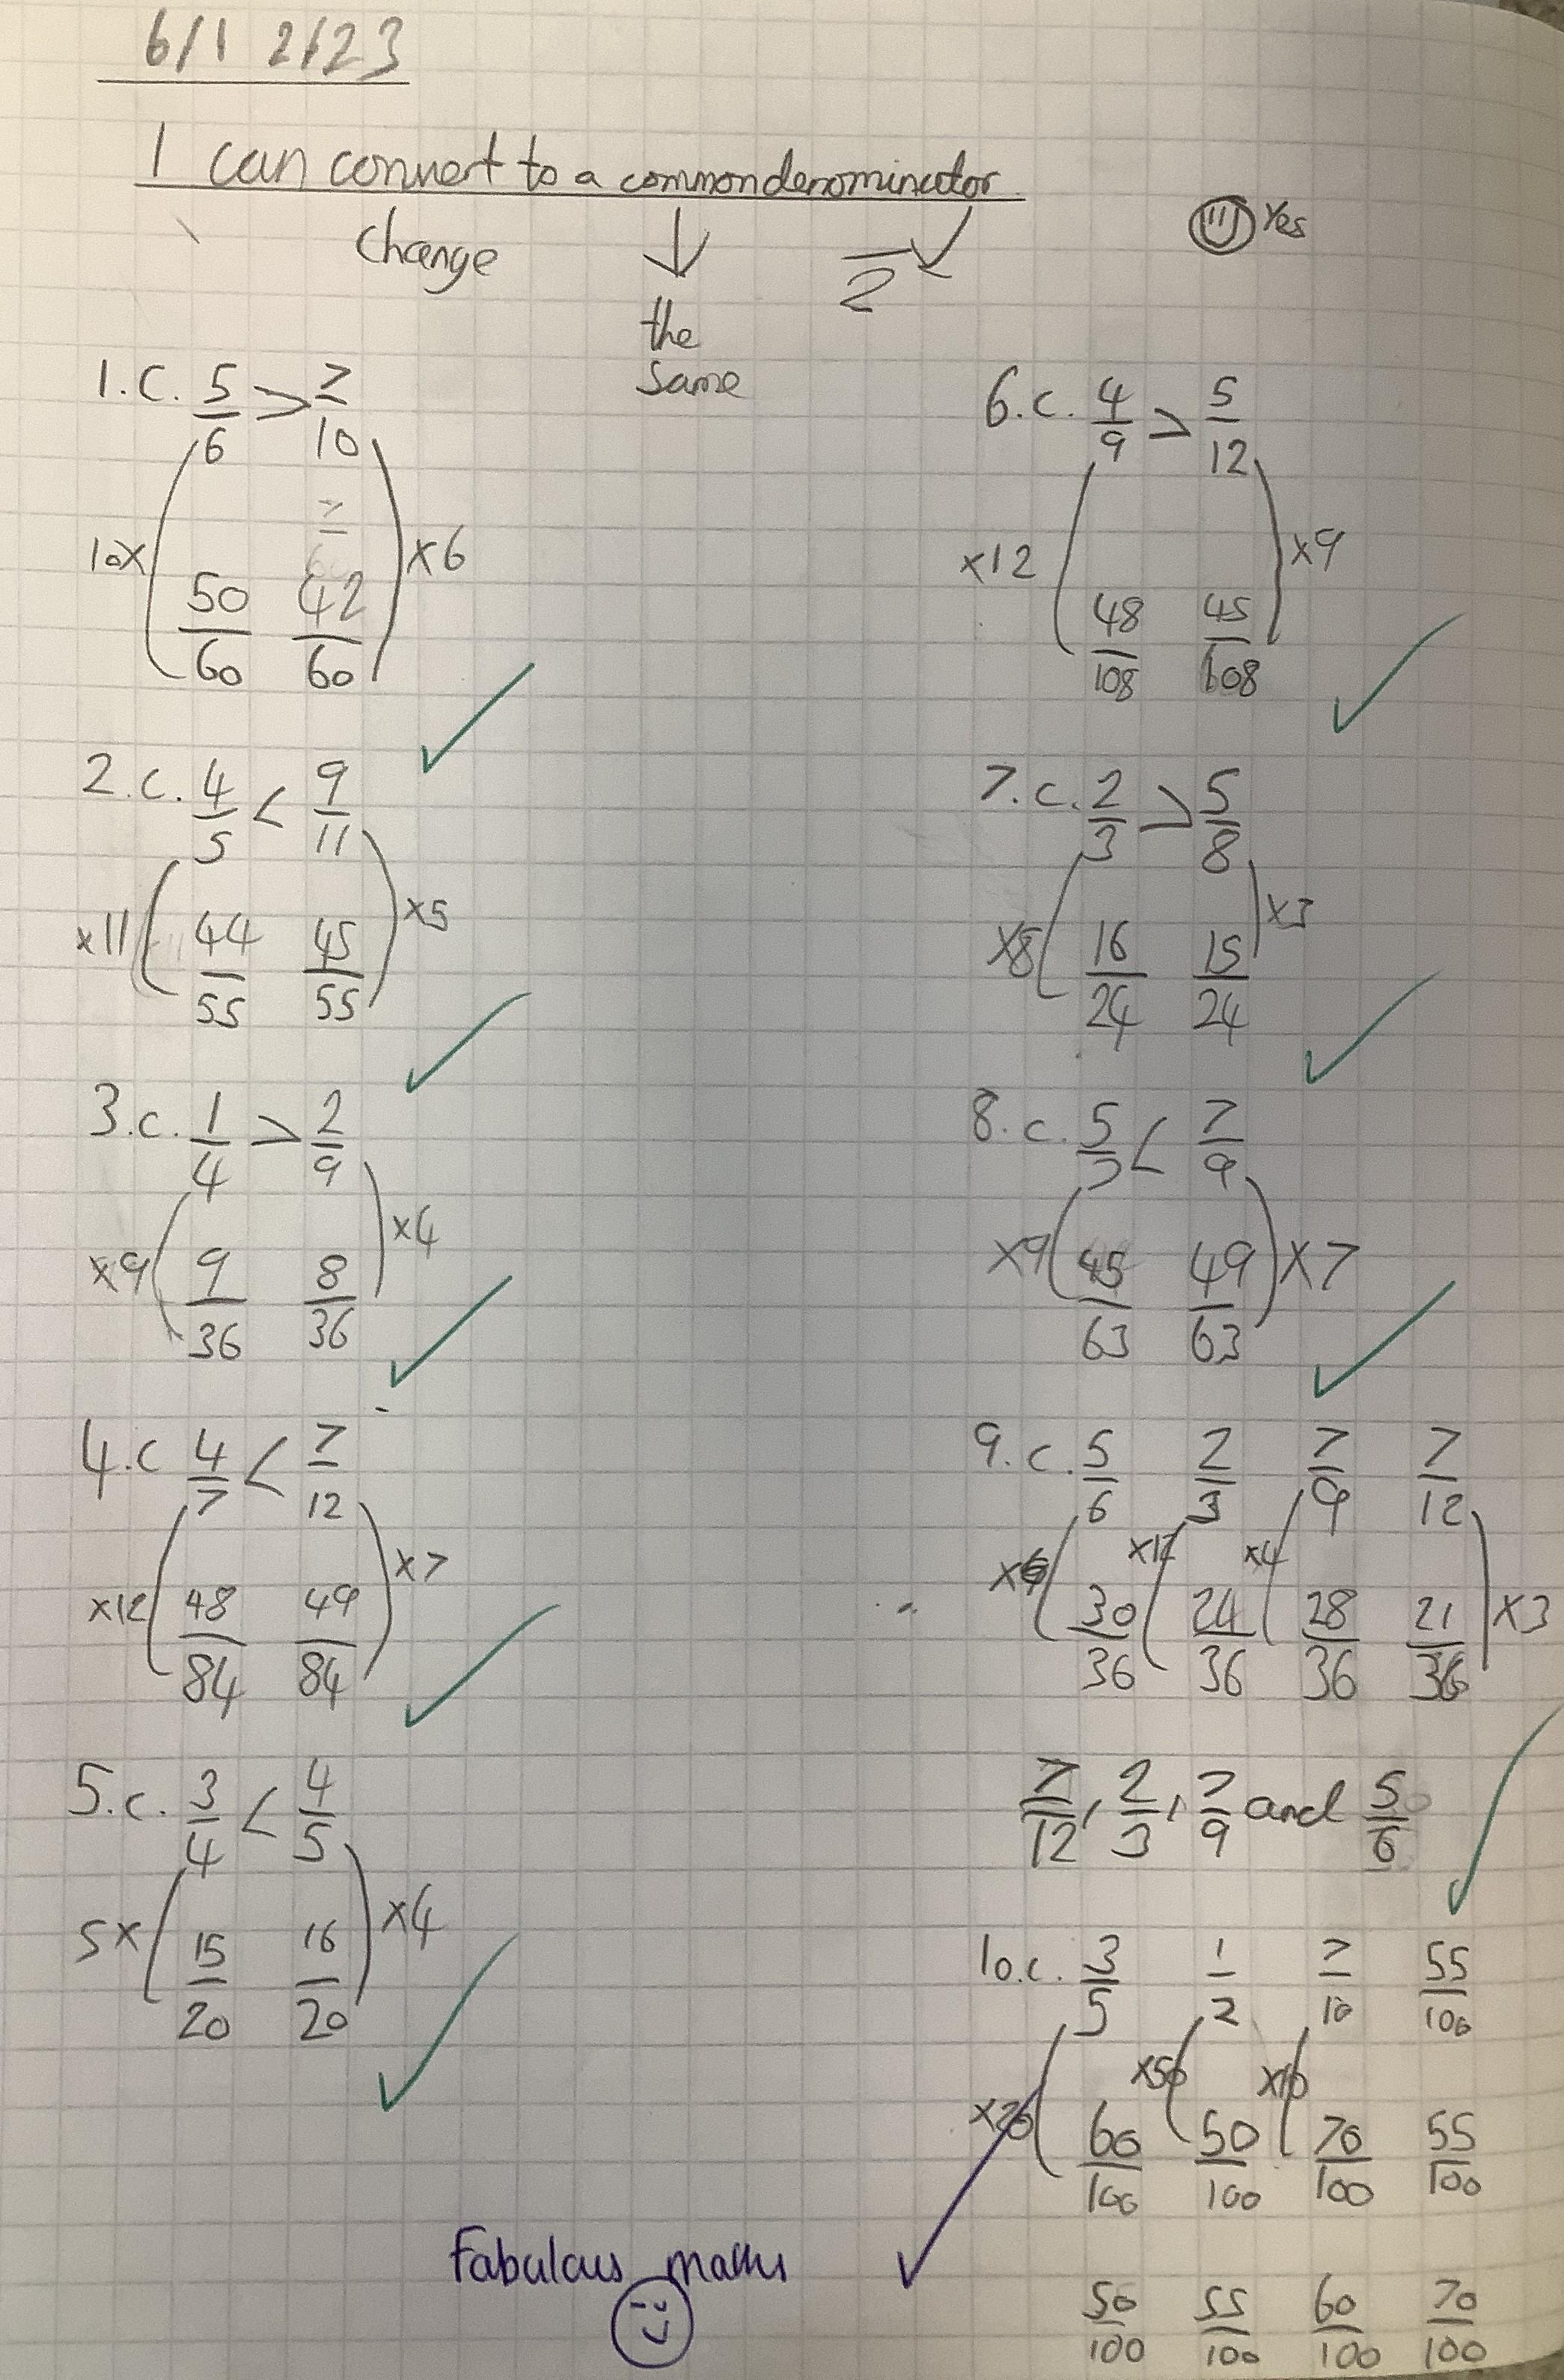 6/12/23
I can convert to a common denominator
change
the
same
2
Yes
1.c. 5/6 > 7/10
10x x6
50/60 42/60
2.c. 4/5 < 9/11
x11 x5
44/55 45/55
3.c. 1/4 > 2/9
x9 x4
9/36 8/36
4.c 4/7 < 7/12
x12 x7
48/84 49/84
5.c. 3/4 < 4/5
5x x4
15/20 16/20
6.c. 4/9 > 5/12
x12 x9
48/108 45/108
7.c. 2/3 > 5/8
x8 x3
16/24 15/24
8.c. 5/7 < 7/9
x9 x7
45/63 49/63
9.c. 5/6 2/3 7/9 7/12
x12 x4 x3
30/36 24/36 28/36 21/36
7/12, 2/3, 7/9 and 5/6
10.c. 3/5 1/2 7/10 55/100
x20 x50 x10
60/100 50/100 70/100 55/100
50/100 55/100 60/100 70/100
Fabulous maths